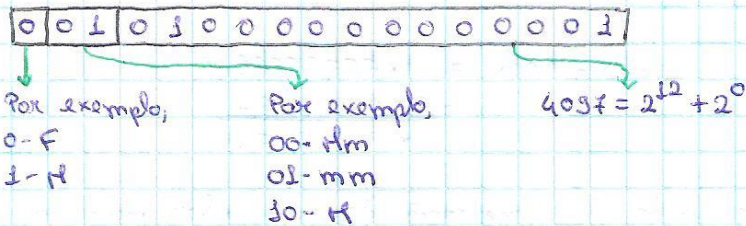 0 0 1 0 1 0 0 0 0 0 0 0 0 0 0 0 1
Por exemplo,
0-F
1-M
Por exemplo,
00-Mm
01-mm
10-M
4097 = 2^12 + 2^0